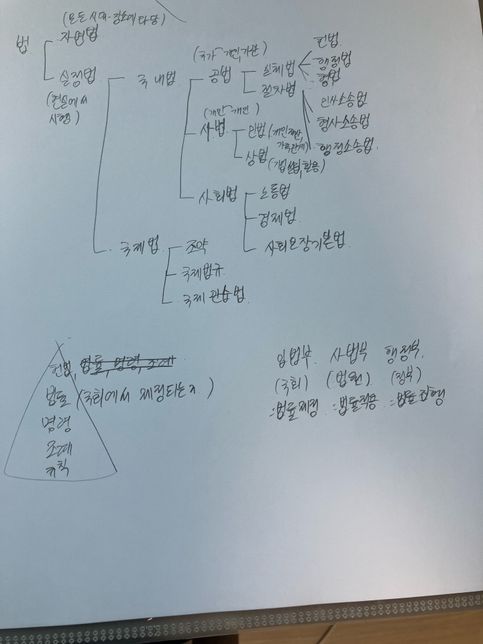 (모든 시대·장소에 타당)
법 자연법
실정법
(현실에서
시행)
국내법
(국가-개인, 기관)
공법
실체법
헌법
행정법
형법
절차법
민사소송법
형사소송법
행정소송법
(개인-개인)
사법
민법 (개인재산, 가족관계)
상법
사회법
노동법
경제법
사회보장기본법
국제법
조약
국제법규
국제관습법
헌법, 법률, 명령, 조례
법률 (국회에서 제정되는지)
명령
조례
규칙
입법부 사법부 행정부
(국회) (법원) (정부)
:법률제정 :법률적용 :법률집행